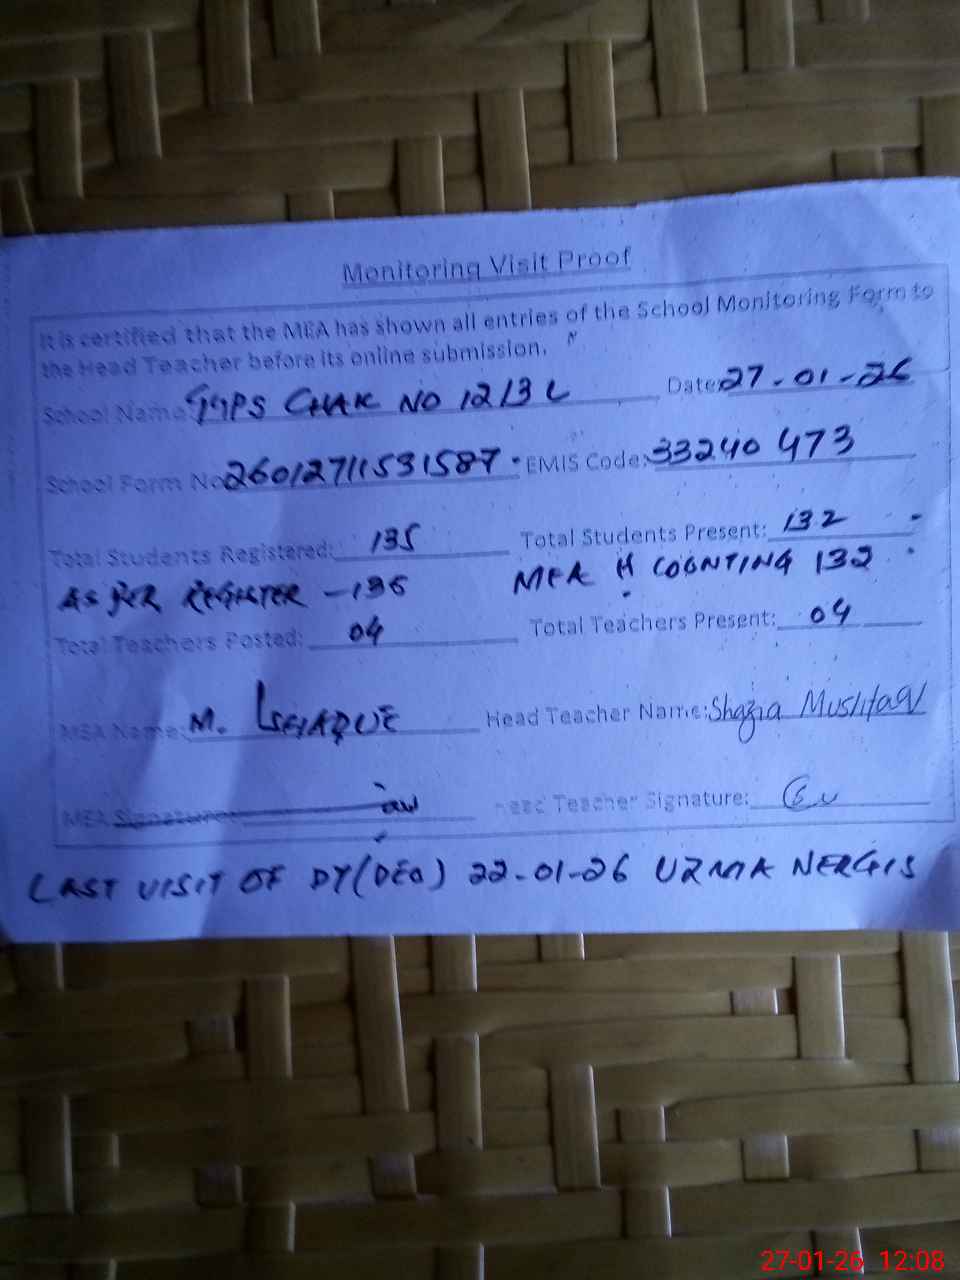 Monitoring Visit Proof
It is certified that the MEA has shown all entries of the School Monitoring Form to
the Head Teacher before its online submission.
School Name: GGPS CHAK NO 12/3 L Date: 27-01-26
School Form No 260127111531587 EMIS Code: 33240473
Total Students Registered: 135 Total Students Present: 132
AS PER REGISTER - 135 MEA H COUNTING 132
Total Teachers Posted: 04 Total Teachers Present: 04
MEA Name: M. ISHAQUE Head Teacher Name: Shazia Mushtaq
MEA Signature: Head Teacher Signature:
LAST VISIT OF DY(DEO) 22-01-26 UZMA NERGIS
27-01-26 12:08